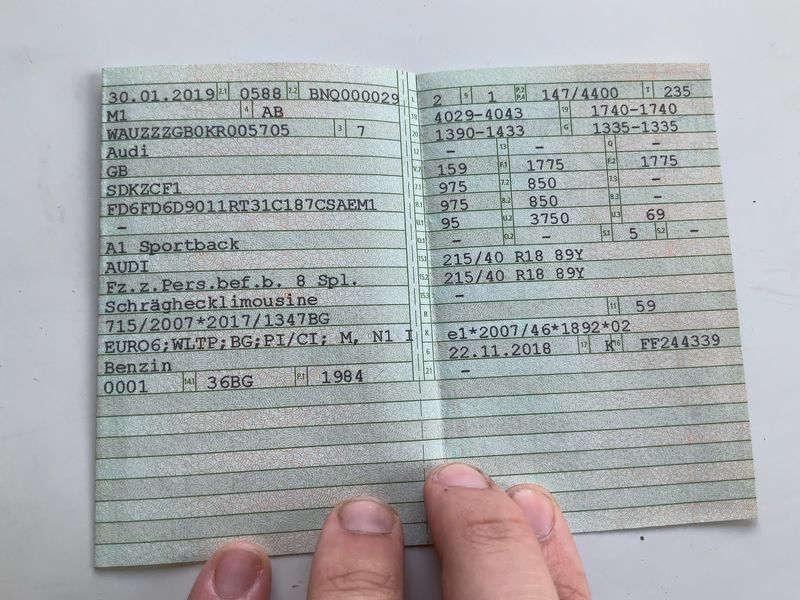 30.01.2019 2.1 0588 2.2 BNQ000029
M1 4 AB
WAUZZZGB0KR005705 3 7
Audi
GB
SDKZCF1
FD6FD6D9011RT31C187CSAEM1
–
A1 Sportback
AUDI
Fz.z.Pers.bef.b. 8 Spl.
Schräghecklimousine
715/2007*2017/1347BG
EURO6;WLTP;BG;PI/CI; M, N1 I
Benzin
0001 14.1 36BG P.1 1984
L 2 9 1 P.2 P.4 147/4400 T 235
18 4029-4043 19 1740-1740
20 1390-1433 G 1335-1335
12 – 13 – Q –
V.7 159 F.1 1775 F.2 1775
7.1 975 7.2 850 7.3 –
8.1 975 8.2 850 8.3 –
U.1 95 U.2 3750 U.3 69
O.1 – O.2 – S.1 5 S.2 –
15.1 215/40 R18 89Y
15.2 215/40 R18 89Y
15.3 –
R 11 59
K e1*2007/46*1892*02
6 22.11.2018 17 K 16 FF244339
21 –